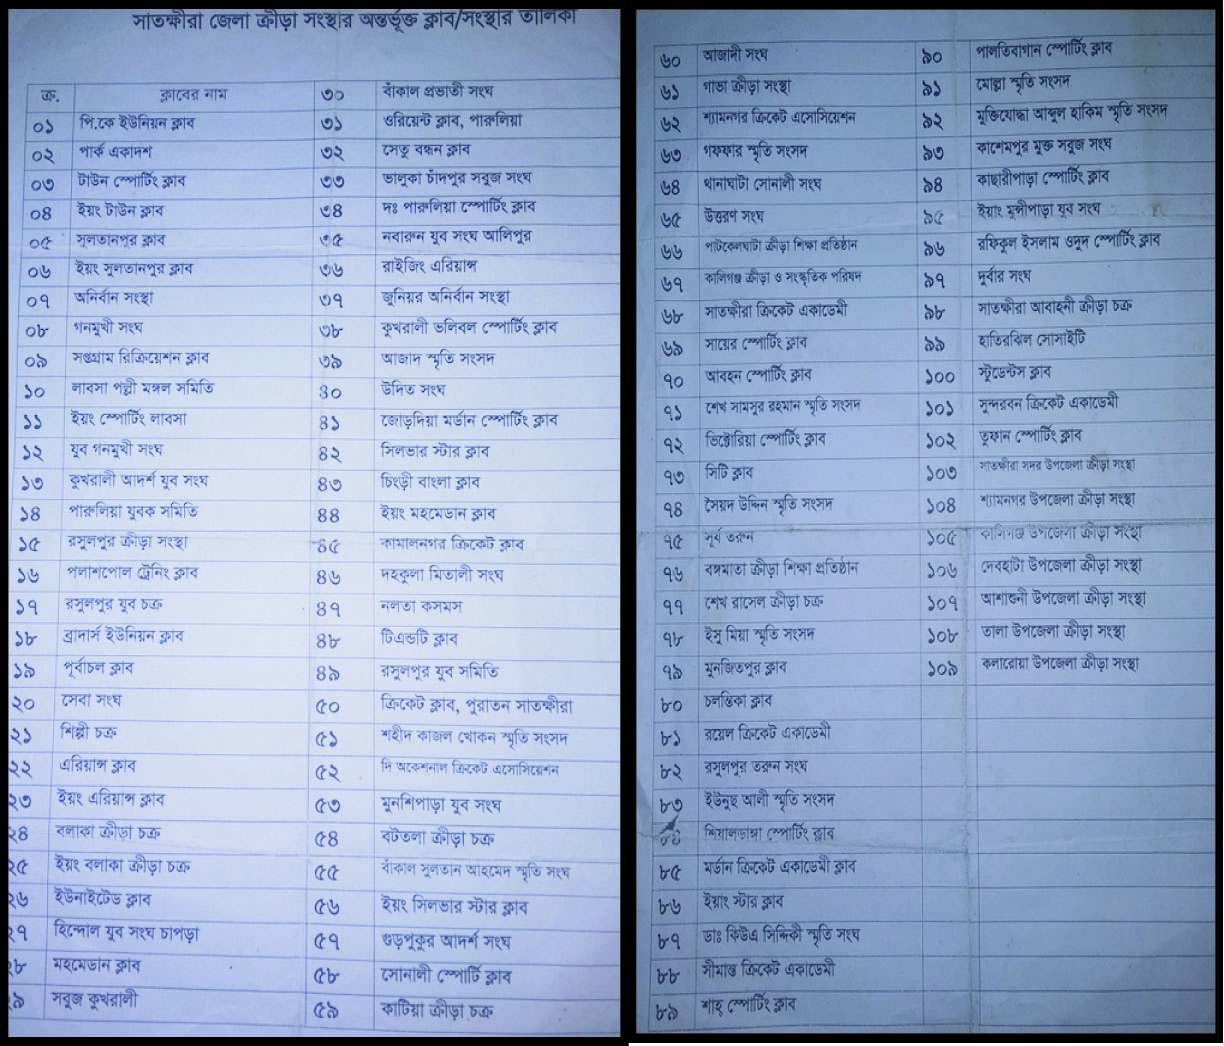 সাতক্ষীরা জেলা ক্রীড়া সংস্থার অন্তর্ভূক্ত ক্লাব/সংস্থার তালিকা
ক্র. ক্লাবের নাম
০১ পি.কে ইউনিয়ন ক্লাব
০২ পার্ক একাদশ
০৩ টাউন স্পোর্টিং ক্লাব
০৪ ইয়ং টাউন ক্লাব
০৫ সুলতানপুর ক্লাব
০৬ ইয়ং সুলতানপুর ক্লাব
০৭ অনির্বান সংস্থা
০৮ গনমুখী সংঘ
০৯ সপ্তগ্রাম রিক্রিয়েশন ক্লাব
১০ লাবসা পল্লী মঙ্গল সমিতি
১১ ইয়ং স্পোর্টিং লাবসা
১২ যুব গনমুখী সংঘ
১৩ কুখরালী আদর্শ যুব সংঘ
১৪ পারুলিয়া যুবক সমিতি
১৫ রসুলপুর ক্রীড়া সংস্থা
১৬ পলাশপোল ট্রেনিং ক্লাব
১৭ রসুলপুর যুব চক্র
১৮ ব্রাদার্স ইউনিয়ন ক্লাব
১৯ পূর্বাচল ক্লাব
২০ সেবা সংঘ
২১ শিল্পী চক্র
২২ এরিয়ান্স ক্লাব
২৩ ইয়ং এরিয়ান্স ক্লাব
২৪ বলাকা ক্রীড়া চক্র
২৫ ইয়ং বলাকা ক্রীড়া চক্র
২৬ ইউনাইটেড ক্লাব
২৭ হিন্দোল যুব সংঘ চাপড়া
২৮ মহমেডান ক্লাব
২৯ সবুজ কুখরালী
৩০ বাঁকাল প্রভাতী সংঘ
৩১ ওরিয়েন্ট ক্লাব, পারুলিয়া
৩২ সেতু বন্ধন ক্লাব
৩৩ ভালুকা চাঁদপুর সবুজ সংঘ
৩৪ দঃ পারুলিয়া স্পোর্টিং ক্লাব
৩৫ নবারুন যুব সংঘ আলিপুর
৩৬ রাইজিং এরিয়ান্স
৩৭ জুনিয়র অনির্বান সংস্থা
৩৮ কুখরালী ভলিবল স্পোর্টিং ক্লাব
৩৯ আজাদ স্মৃতি সংসদ
৪০ উদিত সংঘ
৪১ জোড়দিয়া মর্ডান স্পোর্টিং ক্লাব
৪২ সিলভার স্টার ক্লাব
৪৩ চিংড়ী বাংলা ক্লাব
৪৪ ইয়ং মহমেডান ক্লাব
৪৫ কামালনগর ক্রিকেট ক্লাব
৪৬ দহকুলা মিতালী সংঘ
৪৭ নলতা কসমস
৪৮ টিএন্ডটি ক্লাব
৪৯ রসুলপুর যুব সমিতি
৫০ ক্রিকেট ক্লাব, পুরাতন সাতক্ষীরা
৫১ শহীদ কাজল খোকন স্মৃতি সংসদ
৫২ দি অকেশনাল ক্রিকেট এসোসিয়েশন
৫৩ মুনশিপাড়া যুব সংঘ
৫৪ বটতলা ক্রীড়া চক্র
৫৫ বাঁকাল সুলতান আহমেদ স্মৃতি সংঘ
৫৬ ইয়ং সিলভার স্টার ক্লাব
৫৭ গুড়পুকুর আদর্শ সংঘ
৫৮ সোনালী স্পোর্টি ক্লাব
৫৯ কাটিয়া ক্রীড়া চক্র
৬০ আজাদী সংঘ
৬১ গাভা ক্রীড়া সংস্থা
৬২ শ্যামনগর ক্রিকেট এসোসিয়েশন
৬৩ গফফার স্মৃতি সংসদ
৬৪ থানাঘাটা সোনালী সংঘ
৬৫ উত্তরণ সংঘ
৬৬ পাটকেলঘাটা ক্রীড়া শিক্ষা প্রতিষ্ঠান
৬৭ কালিগঞ্জ ক্রীড়া ও সংস্কৃতিক পরিষদ
৬৮ সাতক্ষীরা ক্রিকেট একাডেমী
৬৯ সায়ের স্পোর্টিং ক্লাব
৭০ আবহন স্পোর্টিং ক্লাব
৭১ শেখ সামসুর রহমান স্মৃতি সংসদ
৭২ ভিক্টোরিয়া স্পোর্টিং ক্লাব
৭৩ সিটি ক্লাব
৭৪ সৈয়দ উদ্দিন স্মৃতি সংসদ
৭৫ সূর্য তরুন
৭৬ বঙ্গমাতা ক্রীড়া শিক্ষা প্রতিষ্ঠান
৭৭ শেখ রাসেল ক্রীড়া চক্র
৭৮ ইসু মিয়া স্মৃতি সংসদ
৭৯ মুনজিতপুর ক্লাব
৮০ চলন্তিকা ক্লাব
৮১ রয়েল ক্রিকেট একাডেমী
৮২ রসুলপুর তরুন সংঘ
৮৩ ইউনুছ আলী স্মৃতি সংসদ
৮৪ শিয়ালডাঙ্গা স্পোর্টিং ক্লাব
৮৫ মর্ডান ক্রিকেট একাডেমী ক্লাব
৮৬ ইয়াং স্টার ক্লাব
৮৭ ডাঃ কিউএ সিদ্দিকী স্মৃতি সংঘ
৮৮ সীমান্ত ক্রিকেট একাডেমী
৮৯ শাহ্ স্পোর্টিং ক্লাব
৯০ পালতিবাগান স্পোর্টিং ক্লাব
৯১ মোল্লা স্মৃতি সংসদ
৯২ মুক্তিযোদ্ধা আব্দুল হাকিম স্মৃতি সংসদ
৯৩ কাশেমপুর মুক্ত সবুজ সংঘ
৯৪ কাছারীপাড়া স্পোর্টিং ক্লাব
৯৫ ইয়াং মুন্সীপাড়া যুব সংঘ
৯৬ রফিকুল ইসলাম ওদুদ স্পোর্টিং ক্লাব
৯৭ দুর্বার সংঘ
৯৮ সাতক্ষীরা আবাহনী ক্রীড়া চক্র
৯৯ হাতিরঝিল সোসাইটি
১০০ স্টুডেন্টস ক্লাব
১০১ সুন্দরবন ক্রিকেট একাডেমী
১০২ তুফান স্পোর্টিং ক্লাব
১০৩ সাতক্ষীরা সদর উপজেলা ক্রীড়া সংস্থা
১০৪ শ্যামনগর উপজেলা ক্রীড়া সংস্থা
১০৫ কালিগঞ্জ উপজেলা ক্রীড়া সংস্থা
১০৬ দেবহাটা উপজেলা ক্রীড়া সংস্থা
১০৭ আশাশুনী উপজেলা ক্রীড়া সংস্থা
১০৮ তালা উপজেলা ক্রীড়া সংস্থা
১০৯ কলারোয়া উপজেলা ক্রীড়া সংস্থা